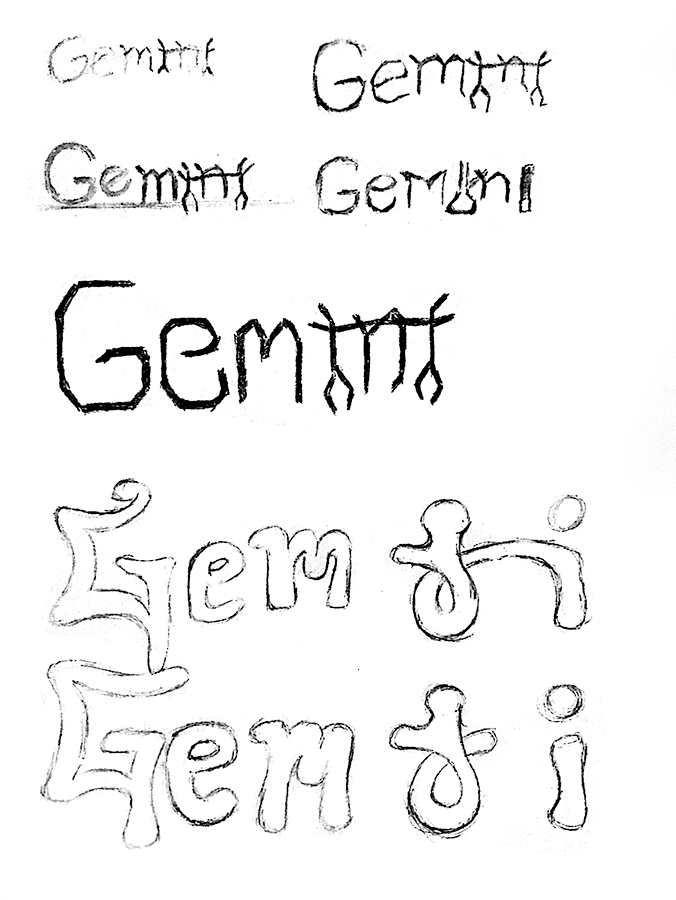 Gemini Gemini
Gemini Gemini
Gemini
Gem i
Gem i